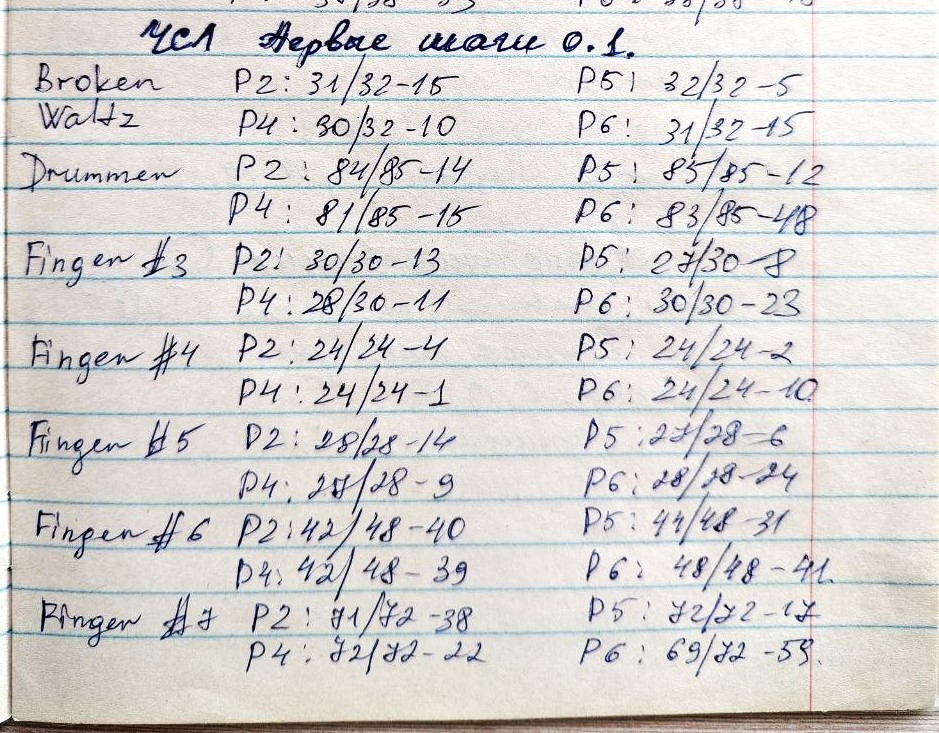 ЧСЛ Первые шаги 0.1.
Broken P2: 31/32-15 P5: 32/32-5
Waltz P4: 30/32-10 P6: 31/32-15
Drummer P2: 84/85-14 P5: 85/85-12
P4: 81/85-15 P6: 83/85-48
Finger #3 P2: 30/30-13 P5: 27/30-8
P4: 28/30-11 P6: 30/30-23
Finger #4 P2: 24/24-4 P5: 24/24-2
P4: 24/24-1 P6: 24/24-10
Finger #5 P2: 28/28-14 P5: 27/28-6
P4: 27/28-9 P6: 28/28-24
Finger #6 P2: 42/48-40 P5: 44/48-31
P4: 42/48-39 P6: 48/48-41.
Finger #7 P2: 71/72-38 P5: 72/72-17
P4: 72/72-22 P6: 69/72-59.